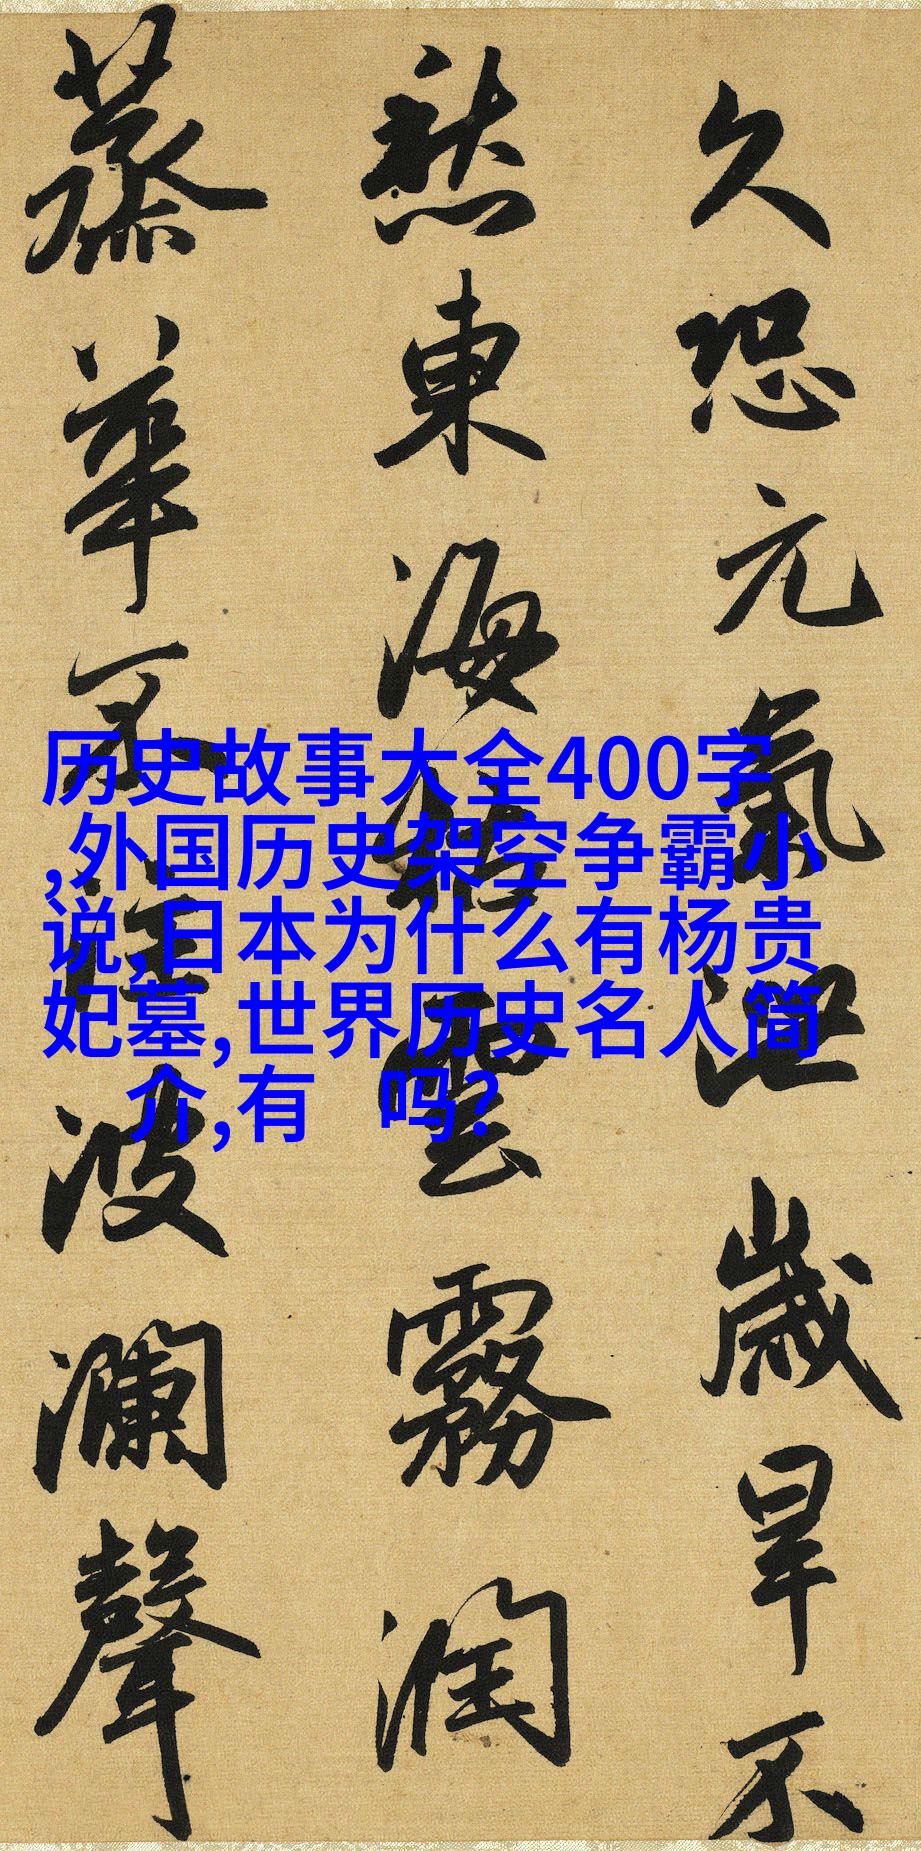 久恐元氣泄歲旱不
愁東海枯雲霧潤
蒸華不注波瀾聲
历史故事大全400字
,外国历史架空争霸小
说,日本为什么有杨贵
妃墓,世界历史名人简
介,有 吗?